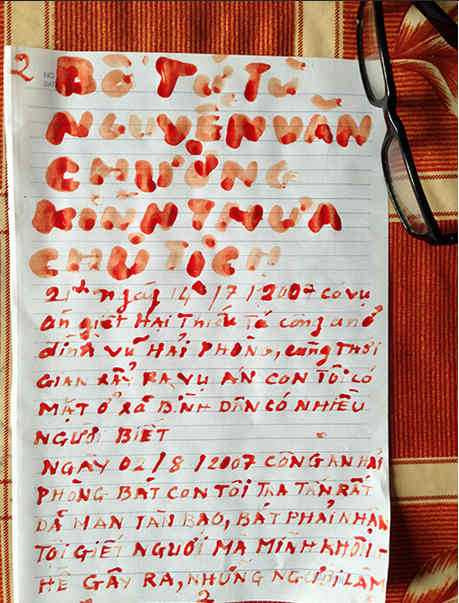 2
Bố Tử Tù
NGUYỄN VĂN
CHƯỞNG
KÍNH THƯA
CHỦ TỊCH
21h ngày 14/7/2007 có vụ
án giết HẠI THIẾU TÁ công an ở
đình vũ HẢI PHÒNG, cùng THỜI
GIAN XẨY RA VỤ ÁN CON TÔI CÓ
MẶT Ở XÃ BÌNH DÂN CÓ NHIỀU
NGƯỜI BIẾT
NGÀY 02/8/2007 CÔNG AN HẢI
PHÒNG BẮT CON TÔI TRA TẤN RẤT
DÃ MAN TÀN BẠO, BẮT PHẢI NHẬN
TỘI GIẾT NGƯỜI MÀ MÌNH KHÔNG
HỀ GÂY RA, NHỮNG NGƯỜI LÀM
2